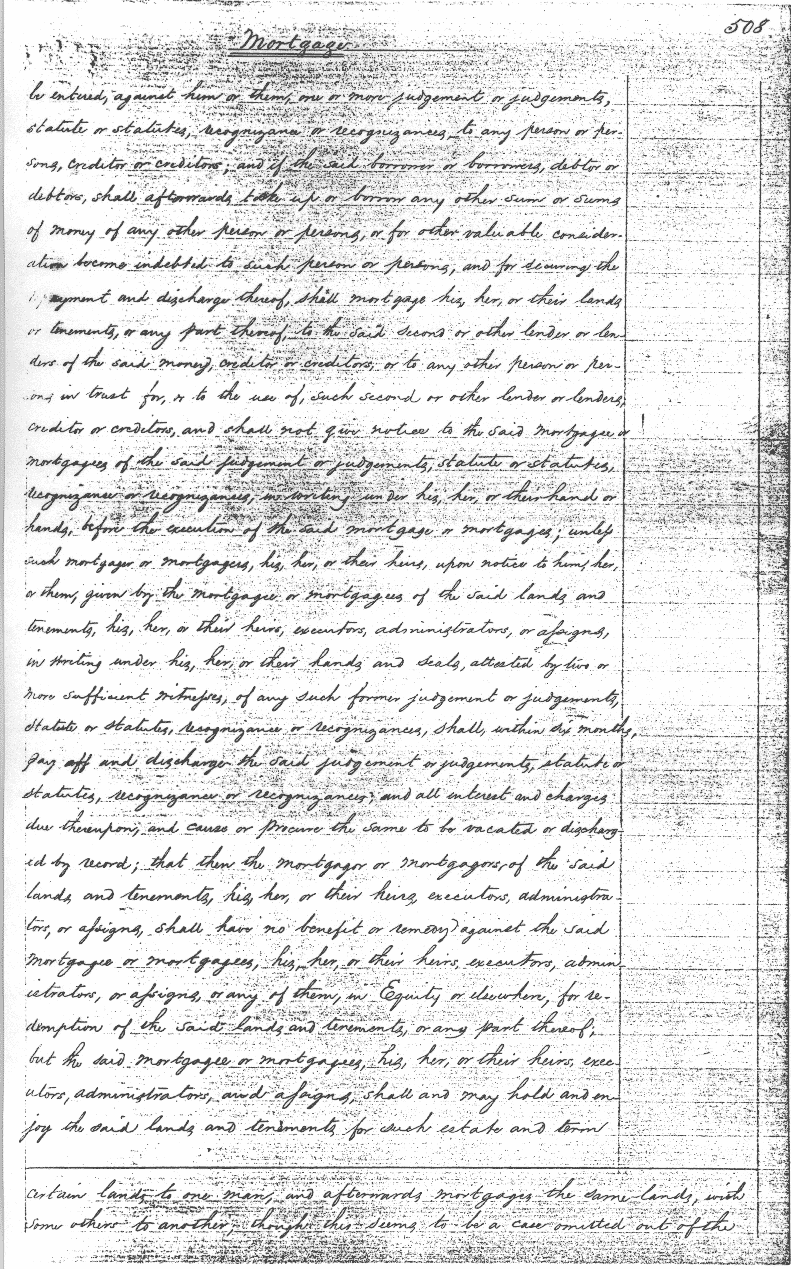 508
Mortgage
be entered, against him or them, one or more judgement or judgements,
statute or statutes, recognizance or recognizances, to any person or per-
sons, creditor or creditors; and if the said borrower or borrowers, debtor or
debtors, shall afterwards take up or borrow any other sum or sums
of money of any other person or persons, or for other valuable consider-
ation become indebted to such person or persons, and for securing the
payment and discharge thereof, shall mortgage his, her, or their lands
or tenements, or any part thereof, to the said second or other lender or len-
ders of the said money, creditor or creditors, or to any other person or per-
sons in trust for, or to the use of, such second or other lender or lenders,
creditor or creditors, and shall not give notice to the said mortgagee or
mortgagees of the said judgement or judgements, statute or statutes,
recognizance or recognizances, in writing under his, her, or their hand or
hands, before the execution of the said mortgage or mortgages; unless
such mortgager or mortgagers, his, her, or their heirs, upon notice to him, her,
or them, given by the mortgagee or mortgagees of the said lands and
tenements, his, her, or their heirs, executors, administrators, or assigns,
in writing under his, her, or their hands and seals, attested by two or
more sufficient witnesses, of any such former judgement or judgements,
statute or statutes, recognizance or recognizances, shall, within six months,
pay off and discharge the said judgement or judgements, statute or
statutes, recognizance or recognizances; and all interest and charges
due thereupon, and cause or procure the same to be vacated or discharg-
ed by record; that then the mortgagor or mortgagors, of the said
lands and tenements, his, her, or their heirs, executors, administra-
tors, or assigns, shall have no benefit or remedy against the said
mortgagee or mortgagees, his, her, or their heirs, executors, admin-
istrators, or assigns, or any of them, in Equity or elsewhere, for re-
demption of the said lands and tenements, or any part thereof;
but the said mortgagee or mortgagees, his, her, or their heirs, exec-
utors, administrators, and assigns, shall and may hold and en-
joy the said lands and tenements for such estate and term
certain lands to one man, and afterwards mortgages the same lands, with
some others to another; though this seems to be a case omitted out of the